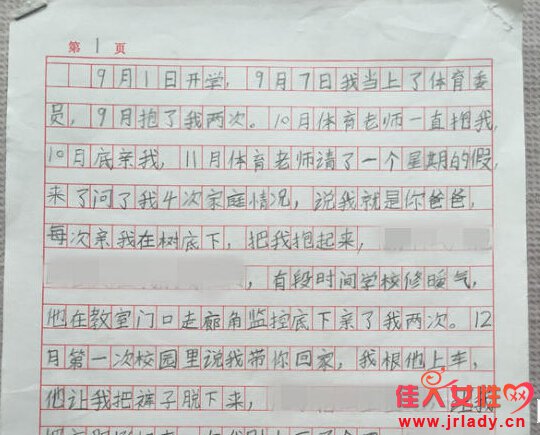 第 1 页
9月1日开学，9月7日我当上了体育委
员，9月抱了我两次。10月体育老师一直抱我，
10月底亲我，11月体育老师请了一个星期的假，
来了问了我4次家庭情况，说我就是你爸爸，
每次亲我在树底下，把我抱起来，
，有段时间学校修暖气，
他在教室门口走廊角监控底下亲了我两次。12
月第一次校园里说我带你回家，我根他上车，
他让我把裤子脱下来，
佳人女性网
www.jrlady.com